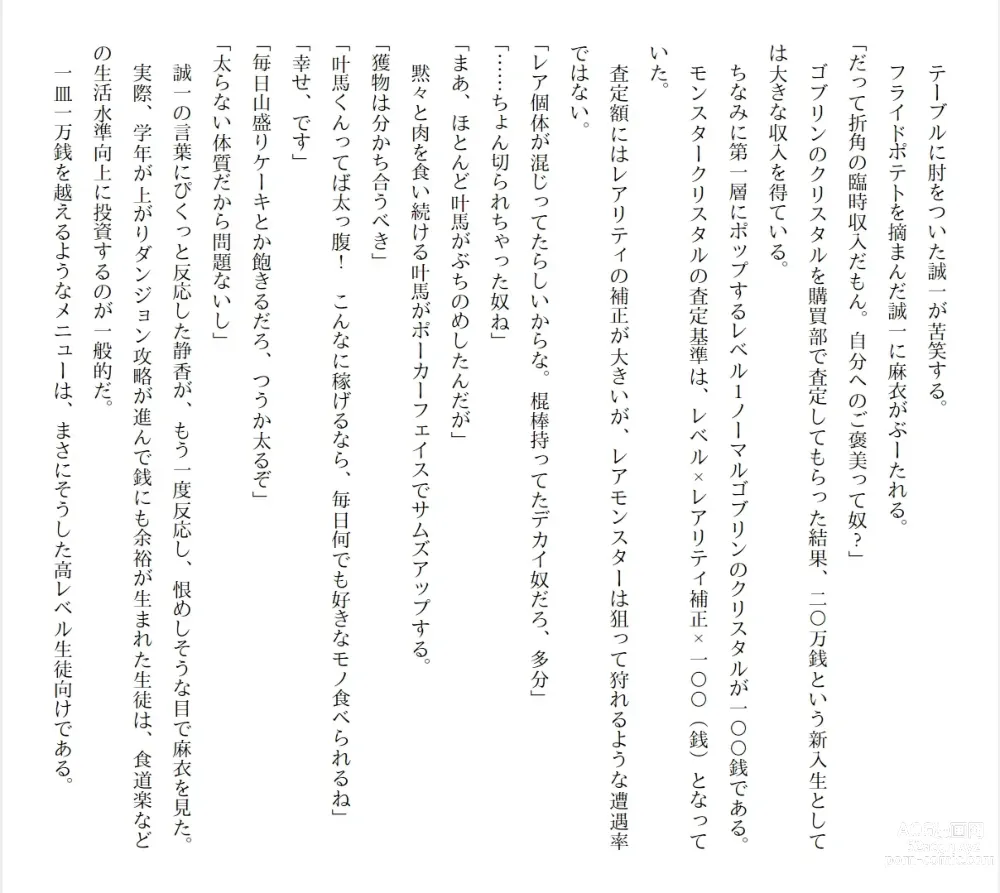 テーブルに肘をついた誠一が苦笑する。
フライドポテトを摘まんだ誠一に麻衣がぶーたれる。
「だって折角の臨時収入だもん。自分へのご褒美って奴？」
ゴブリンのクリスタルを購買部で査定してもらった結果、二〇万銭という新入生として
は大きな収入を得ている。
ちなみに第一層にポップするレベル１ノーマルゴブリンのクリスタルが一〇〇銭である。
モンスタークリスタルの査定基準は、レベル×レアリティ補正×一〇〇（銭）となって
いた。
査定額にはレアリティの補正が大きいが、レアモンスターは狙って狩れるような遭遇率
ではない。
「レア個体が混じってたらしいからな。棍棒持ってたデカイ奴だろ、多分」
「……ちょん切られちゃった奴ね」
「まあ、ほとんど叶馬がぶちのめしたんだが」
黙々と肉を食い続ける叶馬がポーカーフェイスでサムズアップする。
「獲物は分かち合うべき」
「叶馬くんってば太っ腹！　こんなに稼げるなら、毎日何でも好きなモノ食べられるね」
「幸せ、です」
「毎日山盛りケーキとか飽きるだろ、つうか太るぞ」
「太らない体質だから問題ないし」
誠一の言葉にぴくっと反応した静香が、もう一度反応し、恨めしそうな目で麻衣を見た。
実際、学年が上がりダンジョン攻略が進んで銭にも余裕が生まれた生徒は、食道楽など
の生活水準向上に投資するのが一般的だ。
一皿一万銭を越えるようなメニューは、まさにそうした高レベル生徒向けである。